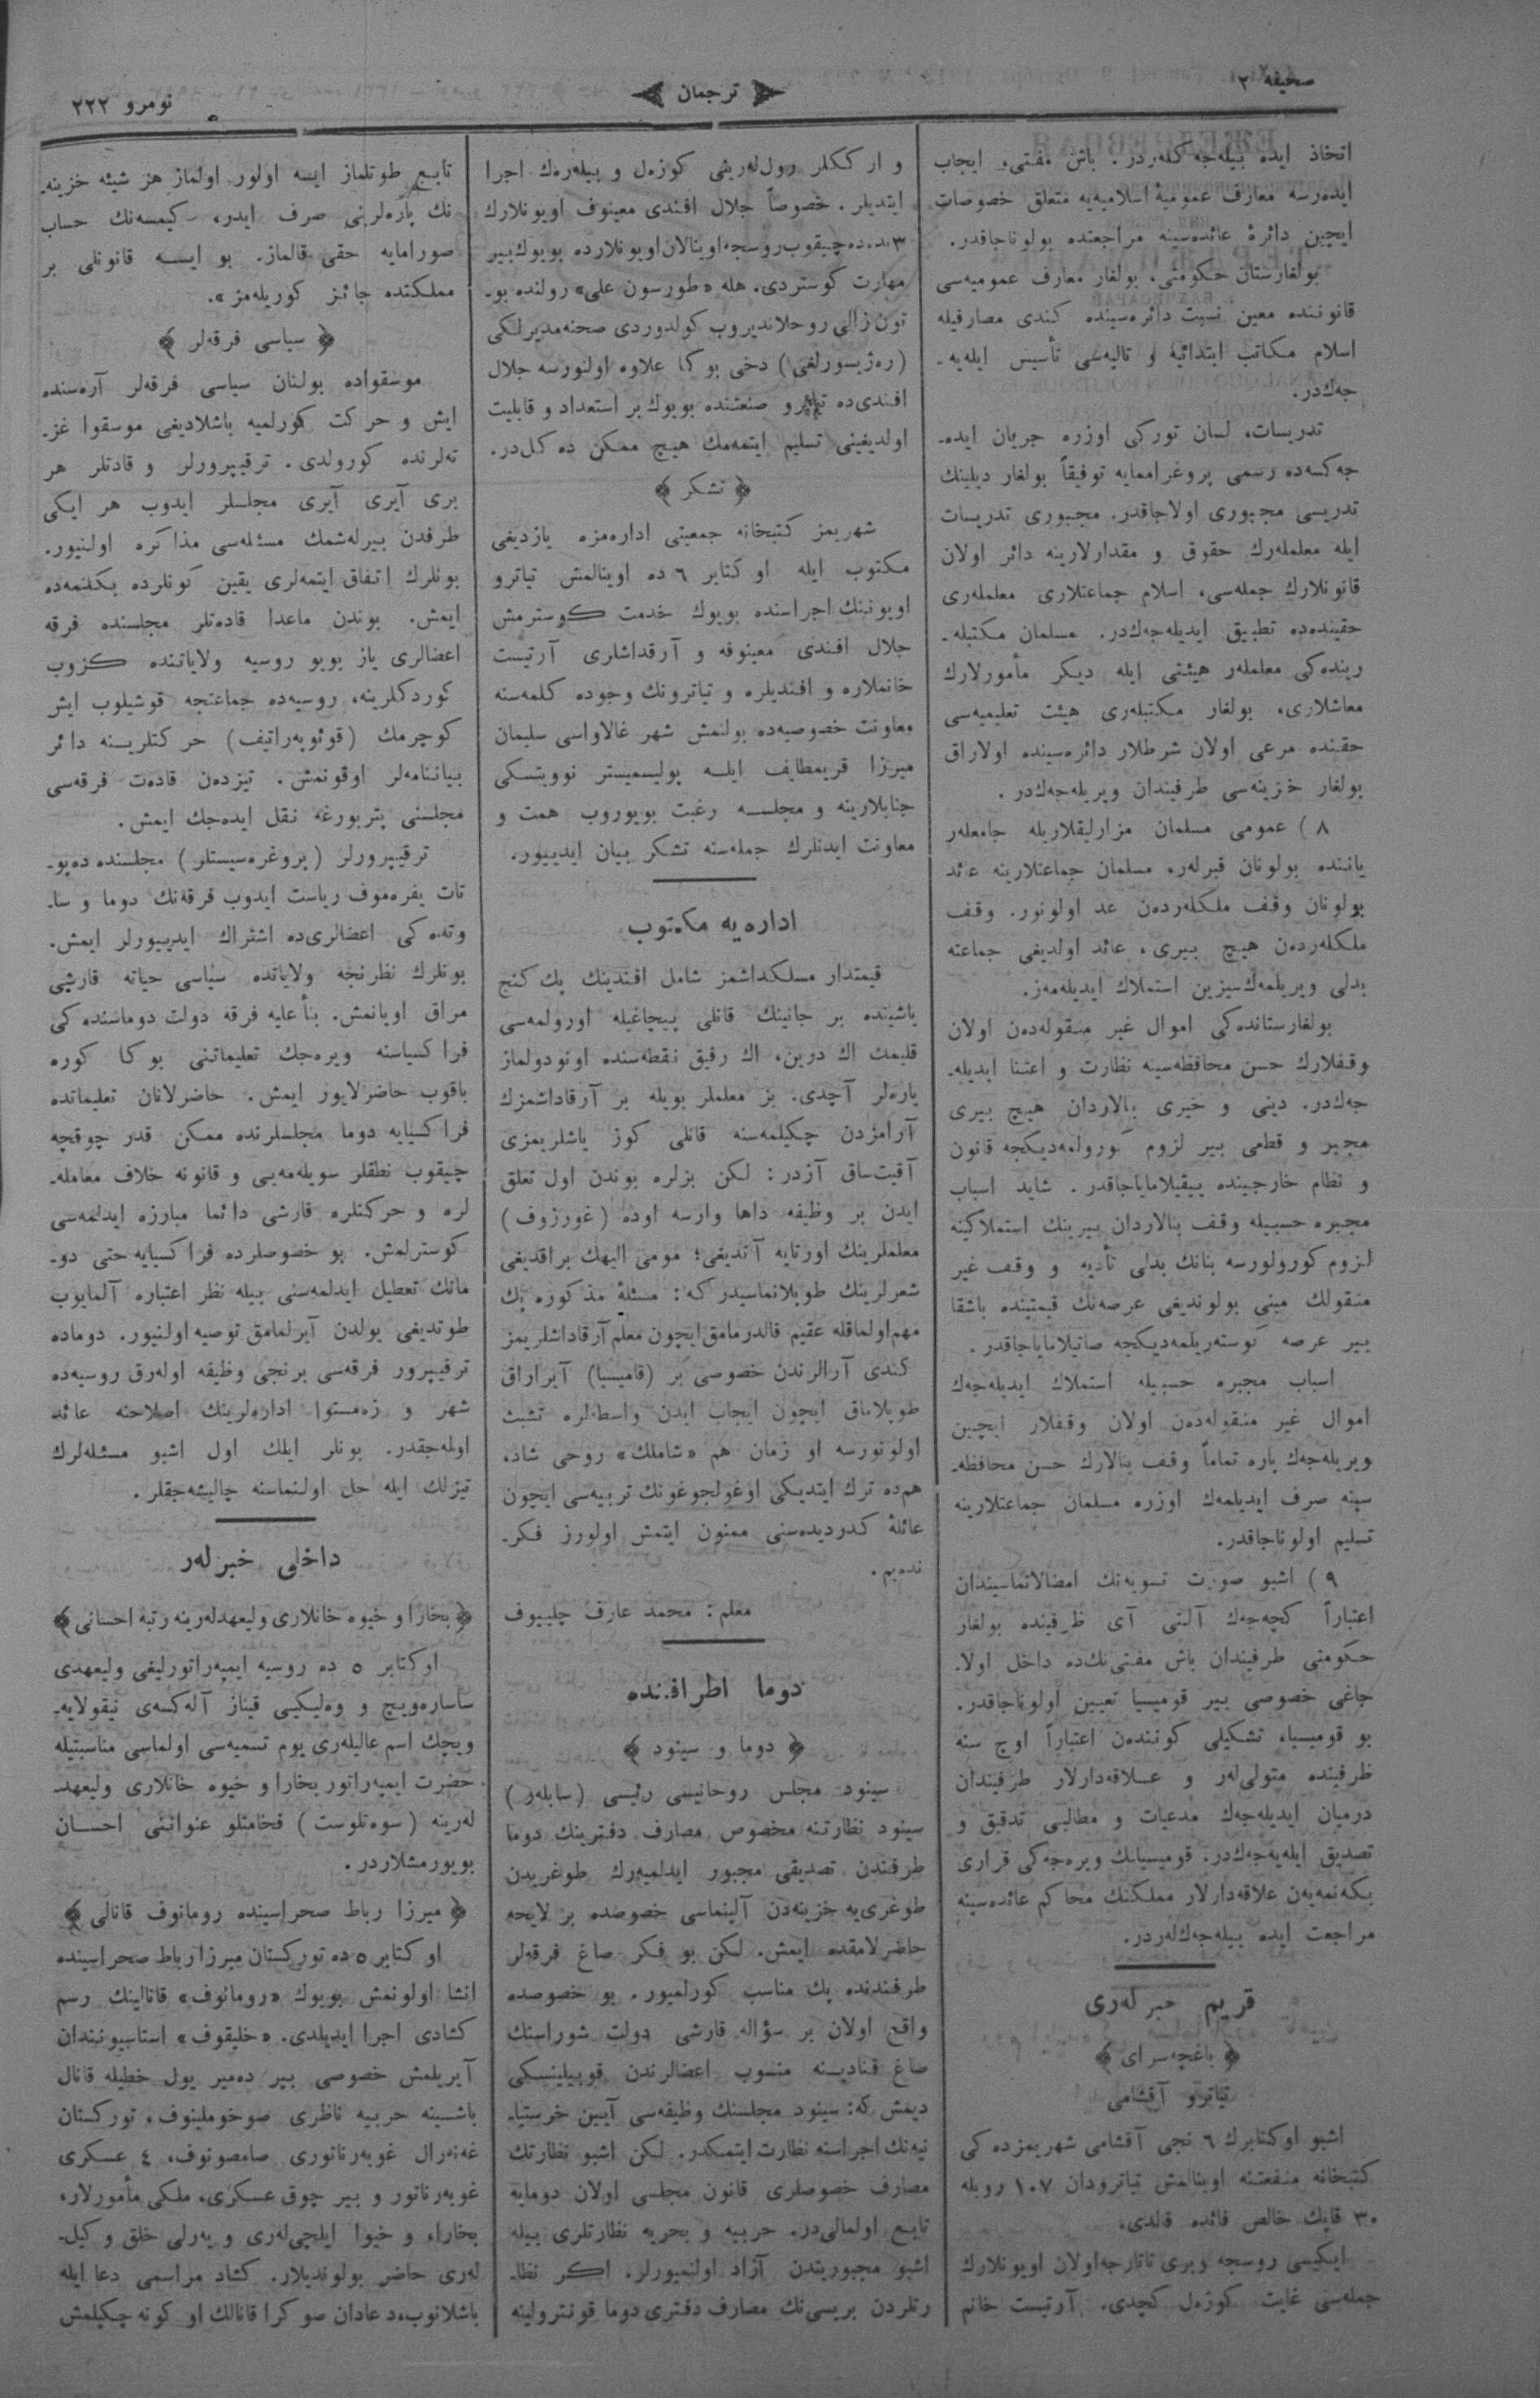 صحیفه ۲
ترجمان
نومرو ۲۲۲
اتخاذ ایده بیله‌جه‌كله‌ردر. باش مفتی، ایجاب
ایده‌رسه معارف عمومیهٔ اسلامیه‌یه متعلق خصوصات
ایچین دائرهٔ عائده‌سینه مراجعتده بولوناجاقدر.
بولغارستان حكومتی، بولغار معارف عمومیه‌سی
قانوننده معین نسبت دائره‌سینده كندی مصارفیله
اسلام مكاتب ابتدائیه و تالیه‌سی تأسیس ایله‌یه‌ـ
جه‌ك‌در.
تدریسات، لسان توركی اوزره جریان ایده‌ـ
جه‌كسه‌ده رسمی پروغراممایه توفیقاً بولغار دیلینك
تدریسی مجبوری اولاجاقدر. مجبوری تدریسات
ایله معلمله‌رك حقوق و مقدارلارینه دائر اولان
قانونلارك جمله‌سی، اسلام جماعتلاری معلمله‌ری
حقینده‌ده تطبیق ایدیله‌جه‌ك‌در. مسلمان مكتبله‌ـ
رینده‌كی معلمله‌ر هیئتی ایله دیكر مأمورلارك
معاشلاری، بولغار مكتبله‌ری هیئت تعلیمیه‌سی
حقنده مرعی اولان شرطلار دائره‌سینده اولاراق
بولغار خزینه‌سی طرفیندان ویریله‌جه‌ك‌در.
۸) عمومی مسلمان مزارلیقلاریله جامعله‌ر
یاننده بولونان قبرله‌ر، مسلمان جماعتلارینه عائد
بولونان وقف ملكله‌رده‌ن عد اولونور. وقف
ملكله‌رده‌ن هیچ بیری، عائد اولدیغی جماعته
بدلی ویریلمه‌ك‌سیزین استملاك ایدیله‌مه‌ز.
بولغارستانده‌كی اموال غیر منقوله‌ده‌ن اولان
وقفلارك حسن محافظه‌سینه نظارت و اعتنا ایدیله‌ـ
جه‌ك‌در. دینی و خیری بنالاردان هیچ بیری
مجبر و قطعی بیر لزوم كورولمه‌دیكجه قانون
و نظام خارجینده ییقیلامایاجاقدر. شاید اسباب
مجبره حسبیله وقف بنالاردان بیرینك استملاكینه
لزوم كورولورسه بنانك بدلی تأدیه و وقف غیر
منقولك مبنی بولوندیغی عرصه‌نك قیمتینده باشقا
بیر عرصه كوسته‌ریلمه‌دیكجه صاتیلامایاجاقدر.
اسباب مجبره حسبیله استملاك ایدیله‌جه‌ك
اموال غیر منقوله‌ده‌ن اولان وقفلار ایچین
ویریله‌جه‌ك پاره تماماً وقف بنالارك حسن محافظه‌ـ
سینه صرف ایدیلمه‌ك اوزره مسلمان جماعتلارینه
تسلیم اولوناجاقدر.
۹) اشبو صورت تسویه‌نك امضالانماسیندان
اعتباراً كچه‌جه‌ك آلتی آی ظرفینده بولغار
حكومتی طرفیندان باش مفتی‌نك‌ده داخل اولاـ
جاغی خصوصی بیر قومیسیا تعیین اولوناجاقدر.
بو قومیسیا، تشكیلی كوننده‌ن اعتباراً اوچ سنه
ظرفینده متولی‌له‌ر و علاقه‌دارلار طرفیندان
درمیان ایدیله‌جه‌ك مدعیات و مطالبی تدقیق و
تصدیق ایله‌یه‌جه‌ك‌در. قومیسیانك ویره‌جه‌كی قراری
بكه‌نمه‌یه‌ن علاقه‌دارلار مملكتك محاكم عائده‌سینه
مراجعت ایده بیله‌جه‌ك‌له‌ردر.
قریم خبرله‌ری
﴿ باغچه‌سرای ﴾
تیاترو آقشامی
اشبو اوكتابرك ٦ نجی آقشامی شهریمزده‌كی
كتبخانه منفعتنه اوینالمش تیاترودان ۱۰۷ روبله
۳۰ قاپك خالص فائده قالدی.
ایكیسی روسجه وبری تاتارجه اولان اویونلارك
جمله‌سی غایت كوزه‌ل كچدی. آرتیست خانم
و ارككلر رول‌له‌رینی كوزه‌ل و بیله‌ره‌ك اجرا
ایتدیلر. خصوصاً جلال افندی معینوف اویونلارك
۳نده‌ده چیقوب روسجه اوینالان اویونلارده بویوك بیر
مهارت كوستردی. هله «طورسون علی» رولنده بوـ
تون زالی روحلاندیروب كولدوردی صحنه‌مدیرلكی
(ره‌ژیسورلغی) دخی بوكا علاوه اولنورسه جلال
افندی‌ده تیاترو صنعتنده بویوك بر استعداد و قابلیت
اولدیغینی تسلیم ایتمه‌مك هیچ ممكن ده‌كل‌در.
﴿ تشكر ﴾
شهریمز كتبخانه جمعیتی اداره‌مزه یازدیغی
مكتوب ایله اوكتابر ٦ ده اوینالمش تیاترو
اویونینك اجراسنده بویوك خدمت كوسترمش
جلال افندی معینوفه و آرقداشلری آرتیست
خانملاره و افندیلره و تیاترونك وجوده كلمه‌سنه
معاونت خصوصیه‌ده بولنمش شهر غالاواسی سلیمان
میرزا قریمطایف ایله پولیسمیستر نوویتسكی
جنابلارینه و مجلسه رغبت بویوروب همت و
معاونت ایدنلرك جمله‌سنه تشكر بیان ایدییور.
اداره‌یه مكتوب
قیمتدار مسلكداشمز شامل افندینك پك كنج
یاشینده بر جانینك قانلی پیچاغیله اورولمه‌سی
قلبمك اك درین، اك رقیق نقطه‌سنده اونودولماز
یاره‌لر آچدی. بز معلملر بویله بر آرقاداشمزك
آرامزدن چكیلمه‌سنه قانلی كوز یاشلریمزی
آقیت‌ساق آزدر: لكن بزلره بوندن اول تعلق
ایدن بر وظیفه داها وارسه اوده (غورزوف)
معلملرینك اورتایه آتدیغی؛ مومی الیهك براقدیغی
شعرلرینك طوپلانماسیدر كه: مسئلهٔ مذكوره پك
مهم اولماقله عقیم قالدرمامق ایچون معلم آرقاداشلریمز
كندی آرالرندن خصوصی بر (قامیسیا) آیراراق
طوپلاماق ایچون ایجاب ایدن واسطه‌لره تشبث
اولونورسه او زمان هم «شاملك» روحی شاد،
هم‌ده ترك ایتدیكی اوغولجوغونك تربیه‌سی ایچون
عائلهٔ كدردیده‌سنی ممنون ایتمش اولورز فكرـ
نده‌یم.
معلم: محمد عارف چلبییوف
دوما اطرافنده
﴿ دوما و سینود ﴾
سینود مجلس روحانیسی رئیسی (سابلەر)
سینود نظارتنه مخصوص مصارف دفترینك دوما
طرفندن تصدیقی مجبور ایدلمیه‌رك طوغریدن
طوغری‌یه خزینه‌دن آلینماسی خصوصده بر لایحه
حاضرلامقده ایمش. لكن بو فكر صاغ فرقه‌لر
طرفندنده پك مناسب كورلمیور. بو خصوصده
واقع اولان بر سؤاله قارشی دولت شوراسنك
صاغ قنادینه منسوب اعضالرندن قوبیلینسكی
دیمش كه: سینود مجلسنك وظیفه‌سی آیین خرستیاـ
نیه‌نك اجراسنه نظارت ایتمكدر. لكن اشبو نظارتك
مصارف خصوصلری قانون مجلسی اولان دومایه
تابع اولمالی‌در. حربیه و بحریه نظارتلری بیله
اشبو مجبوریتدن آزاد اولنمیورلر. اكر نظاـ
رتلردن بریسی‌نك مصارف دفتری دوما قونترولینه
تابع طوتلماز ایسه اولور اولماز هر شیئه خزینه‌ـ
نك پاره‌لرینی صرف ایدر، كیمسه‌نك حساب
صورامایه حقی قالماز. بو ایسه قانونلی بر
مملكتده جائز كوریله‌مز».
﴿ سیاسی فرقه‌لر ﴾
موسقواده بولنان سیاسی فرقه‌لر آره‌سنده
ایش و حركت كورلمیه باشلادیغی موسقوا غزـ
ته‌لرنده كورولدی. ترقیپرورلر و قادتلر هر
بری آیری آیری مجلسلر ایدوب هر ایكی
طرفدن بیرله‌شمك مسئله‌سی مذاكره اولنیور.
بونلرك اتفاق ایتمه‌لری یقین كونلرده بكلنمه‌ده
ایمش. بوندن ماعدا قاده‌تلر مجلسنده فرقه
اعضالری یاز بویو روسیه ولایاتنده كزوب
كوردكلرینه، روسیه‌ده جماعتجه قوشیلوب ایش
كوچرمك (قوئوپه‌راتیف) حركتلرینه دائر
بیاننامه‌لر اوقونمش. تیزده‌ن قاده‌ت فرقه‌سی
مجلسنی پتربورغه نقل ایده‌جك ایمش.
ترقیپرورلر (پروغره‌سیستلر) مجلسنده ده‌پوـ
تات یفره‌موف ریاست ایدوب فرقه‌نك دوما و ساـ
وته‌ده‌كی اعضالری‌ده اشتراك ایدییورلر ایمش.
بونلرك نظرنجه ولایاتده سیاسی حیاته قارشی
مراق اویانمش. بنأ علیه فرقه دولت دوماسنده‌كی
فراكسیاسنه ویره‌جك تعلیماتنی بوكا كوره
باقوب حاضرلایور ایمش. حاضرلانان تعلیماتده
فراكسیایه دوما مجلسلرنده ممكن قدر چوقچه
چیقوب نطقلر سویله‌مه‌یی و قانونه خلاف معامله‌ـ
لره و حركتلره قارشی دائما مبارزه ایدلمه‌سی
كوسترلمش. بو خصوصلرده فراكسیایه حتی دوـ
مانك تعطیل ایدلمه‌سنی بیله نظر اعتباره آلمایوب
طوتدیغی یولدن آیرلمامق توصیه اولنیور. دوماده
ترقیپرور فرقه‌سی برنجی وظیفه اوله‌رق روسیه‌ده
شهر و زه‌مستوا اداره‌لرینك اصلاحنه عائد
اوله‌جقدر. بونلر ایلك اول اشبو مسئله‌لرك
تیزلك ایله حل اولنماسنه چالیشه‌جقلر.
داخلی خبرله‌ر
﴿ بخارا و خیوه خانلاری ولیعهدله‌رینه رتبه احسانی ﴾
اوكتابر ٥ ده روسیه ایمپه‌راتورلیغی ولیعهدی
ساساره‌ویچ و وه‌لیكیی قیناز آله‌كسه‌ی نیقولایه‌ـ
ویچك اسم عالیله‌ری یوم تسمیه‌سی اولماسی مناسبتیله
حضرت ایمپه‌راتور بخارا و خیوه خانلاری ولیعهدـ
له‌رینه (سوه‌تلوست) فخامتلو عنواننی احسان
بویورمشلاردر.
﴿ میرزا رباط صحراسینده رومانوف قانالی ﴾
اوكتابر ٥ ده توركستان میرزا رباط صحراسینده
انشا اولونمش بویوك «رومانوف» قانالینك رسم
كشادی اجرا ایدیلدی. «خلیقوف» استاسیونیندان
آیریلمش خصوصی بیر ده‌میر یول خطیله قانال
باشینه حربیه ناظری صوخوملینوف، توركستان
غه‌نه‌رال غوبه‌رناتوری صامصونوف، ٤ عسكری
غوبه‌رناتور و بیر چوق عسكری، ملكی مأمورلار،
بخارا، و خیوا ایلچی‌له‌ری و یه‌رلی خلق وكیل‌ـ
له‌ری حاضر بولوندیلار. كشاد مراسمی دعا ایله
باشلانوب، دعادان صوكرا قانالك او كونه چكیلمش